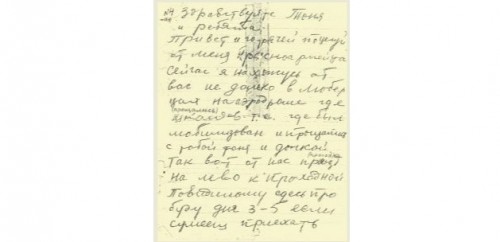 Здравствуйте Тоня
и ребята
Привет и горячей поцелуй
от меня красноармейца
Сейчас я нахожусь от
вас не далеко в Любер
цах на где
т.е. где был
мобилизован и прощался
с тобой Тоня и дочкой
так вот от нас
на лево к проходной
По здесь про
буду дня 3-5 если
сумееш приехать